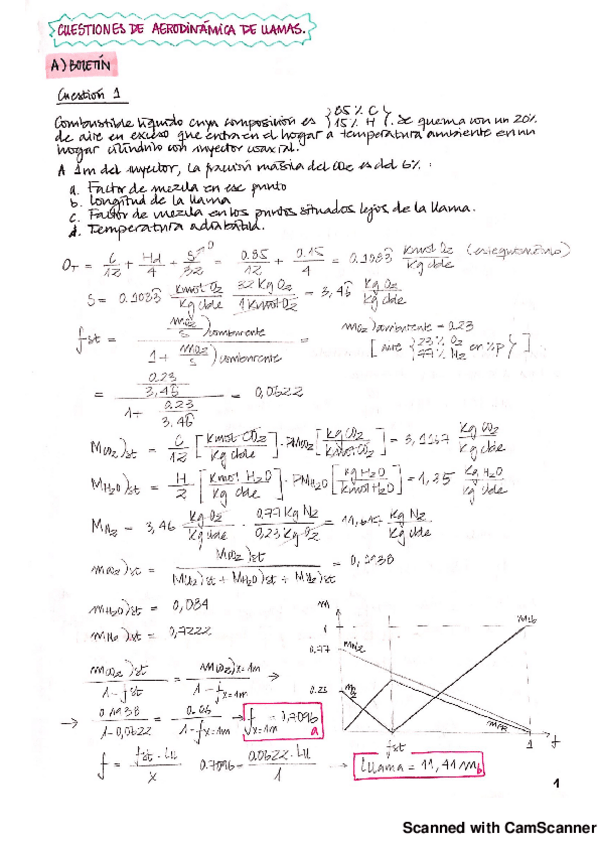 CUESTIONES DE AERODINÁMICA DE LLAMAS.
A) BOLETÍN
Cuestión 1
Combustible líquido cuya composición es { 85% C / 15% H }. Se quema con un 20%
de aire en exceso que entra en el hogar a temperatura ambiente en un
hogar cilíndrico con inyector coaxial.
A 1m del inyector, la fracción másica del CO2 es del 6%:
a. Factor de mezcla en ese punto
b. Longitud de la llama
c. Factor de mezcla en los puntos situados lejos de la llama.
d. Temperatura adiabática.
OT = C/12 + H/4 + S/32 = 0.85/12 + 0.15/4 = 0.1083 Kmol O2/Kg cble (estequiométrico)
S = 0.1083 Kmol O2/Kg cble 32 Kg O2/1 Kmol O2 = 3,46 Kg O2/Kg cble
fst = (mO2/s)comburente / (1 + (mO2/s)comburente) =
mO2)comburente = 0.23
[aire { 23% O2 / 77% N2 } en %P]
= (0.23/3.46) / (1 + 0.23/3.46) = 0,0622
MCO2)st = C/12 [Kmol CO2/Kg cble] · PMCO2 [Kg CO2/Kmol CO2] = 3,1167 Kg CO2/Kg cble
MH2O)st = H/2 [Kmol H2O/Kg cble] · PMH2O [Kg H2O/Kmol H2O] = 1,35 Kg H2O/Kg cble
MN2 = 3,46 Kg O2/Kg cble · 0,77 Kg N2/0,23 Kg O2 = Kg N2/Kg cble
mCO2)st = MCO2)st / (MCO2)st + MH2O)st + MN2)st) = 0,1938
mH2O)st = 0,084
mN2)st = 0,7222
m
mcb
0.77
mN2
0.23
mO2
mPR
fst
1
f
mCO2)st/(1-fst) = mCO2)x=1m/(1-fx=1m) →
→ 0.1938/(1-0,0622) = 0.06/(1-fx=1m) → fx=1m = 0,7096 a
f = fst · LLl/x 0.7096 = 0.0622 · LLl/1 → LLlama = 11,41 m b
1
Scanned with CamScanner